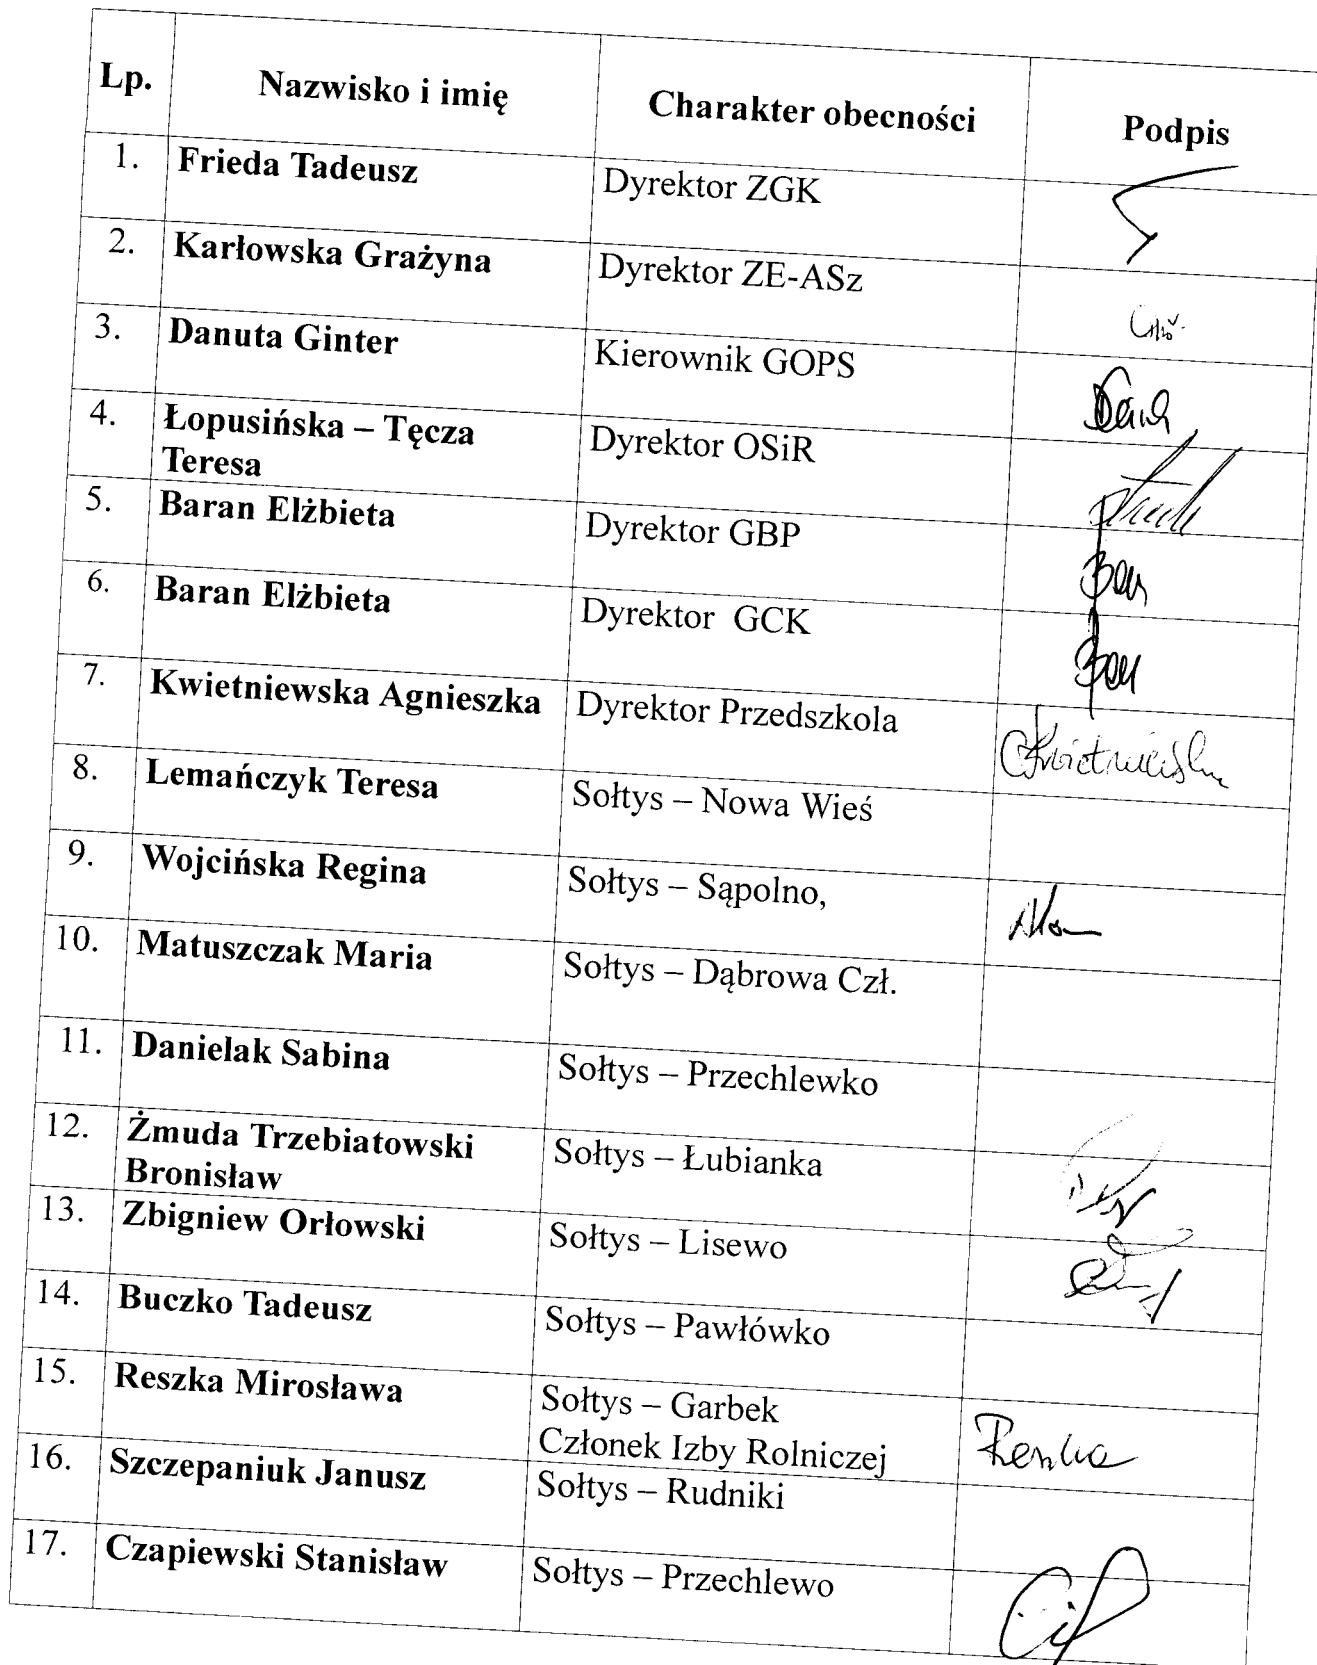 Lp. Nazwisko i imię Charakter obecności Podpis
1. Frieda Tadeusz Dyrektor ZGK
2. Karłowska Grażyna Dyrektor ZE-ASz
3. Danuta Ginter Kierownik GOPS
4. Łopusińska – Tęcza Dyrektor OSiR
Teresa
5. Baran Elżbieta Dyrektor GBP
6. Baran Elżbieta Dyrektor GCK
7. Kwietniewska Agnieszka Dyrektor Przedszkola
8. Lemańczyk Teresa Sołtys – Nowa Wieś
9. Wojcińska Regina Sołtys – Sąpolno,
10. Matuszczak Maria Sołtys – Dąbrowa Czł.
11. Danielak Sabina Sołtys – Przechlewko
12. Żmuda Trzebiatowski Sołtys – Łubianka
Bronisław
13. Zbigniew Orłowski Sołtys – Lisewo
14. Buczko Tadeusz Sołtys – Pawłówko
15. Reszka Mirosława Sołtys – Garbek
Członek Izby Rolniczej Reszka
16. Szczepaniuk Janusz Sołtys – Rudniki
17. Czapiewski Stanisław Sołtys – Przechlewo